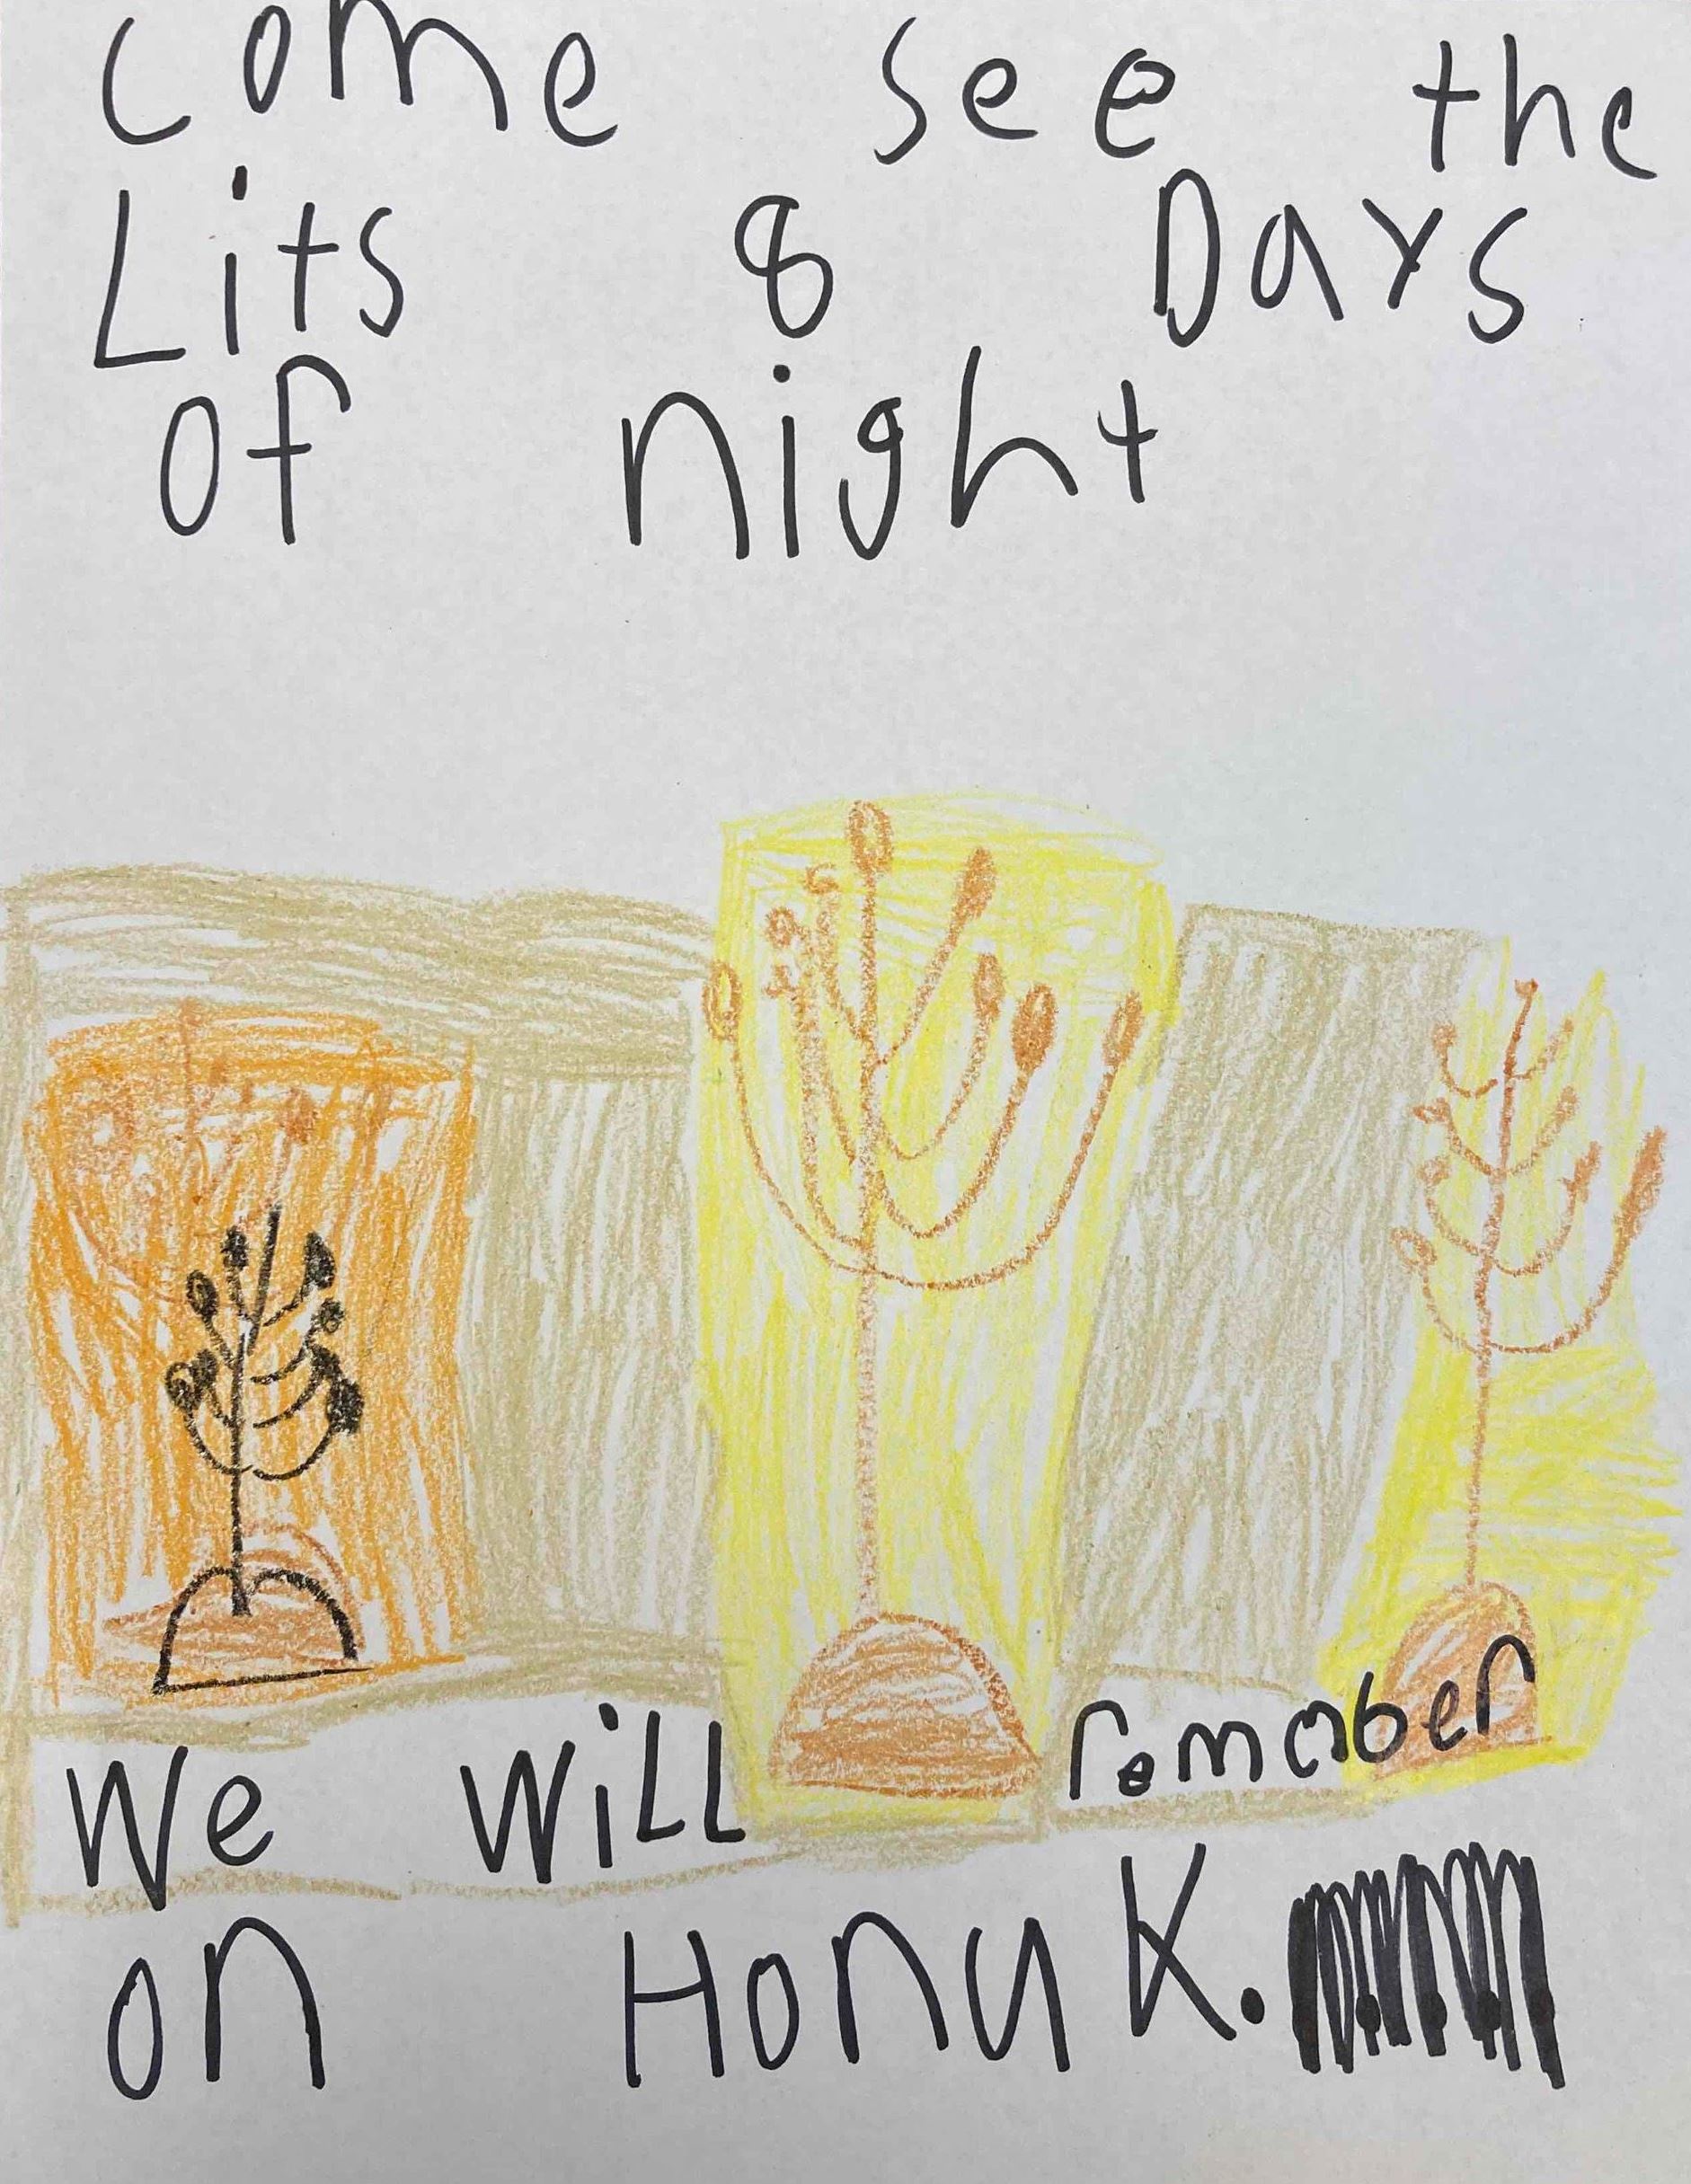 Come see the
Lits 8 Days
of night
We will remaber
on Honuk.